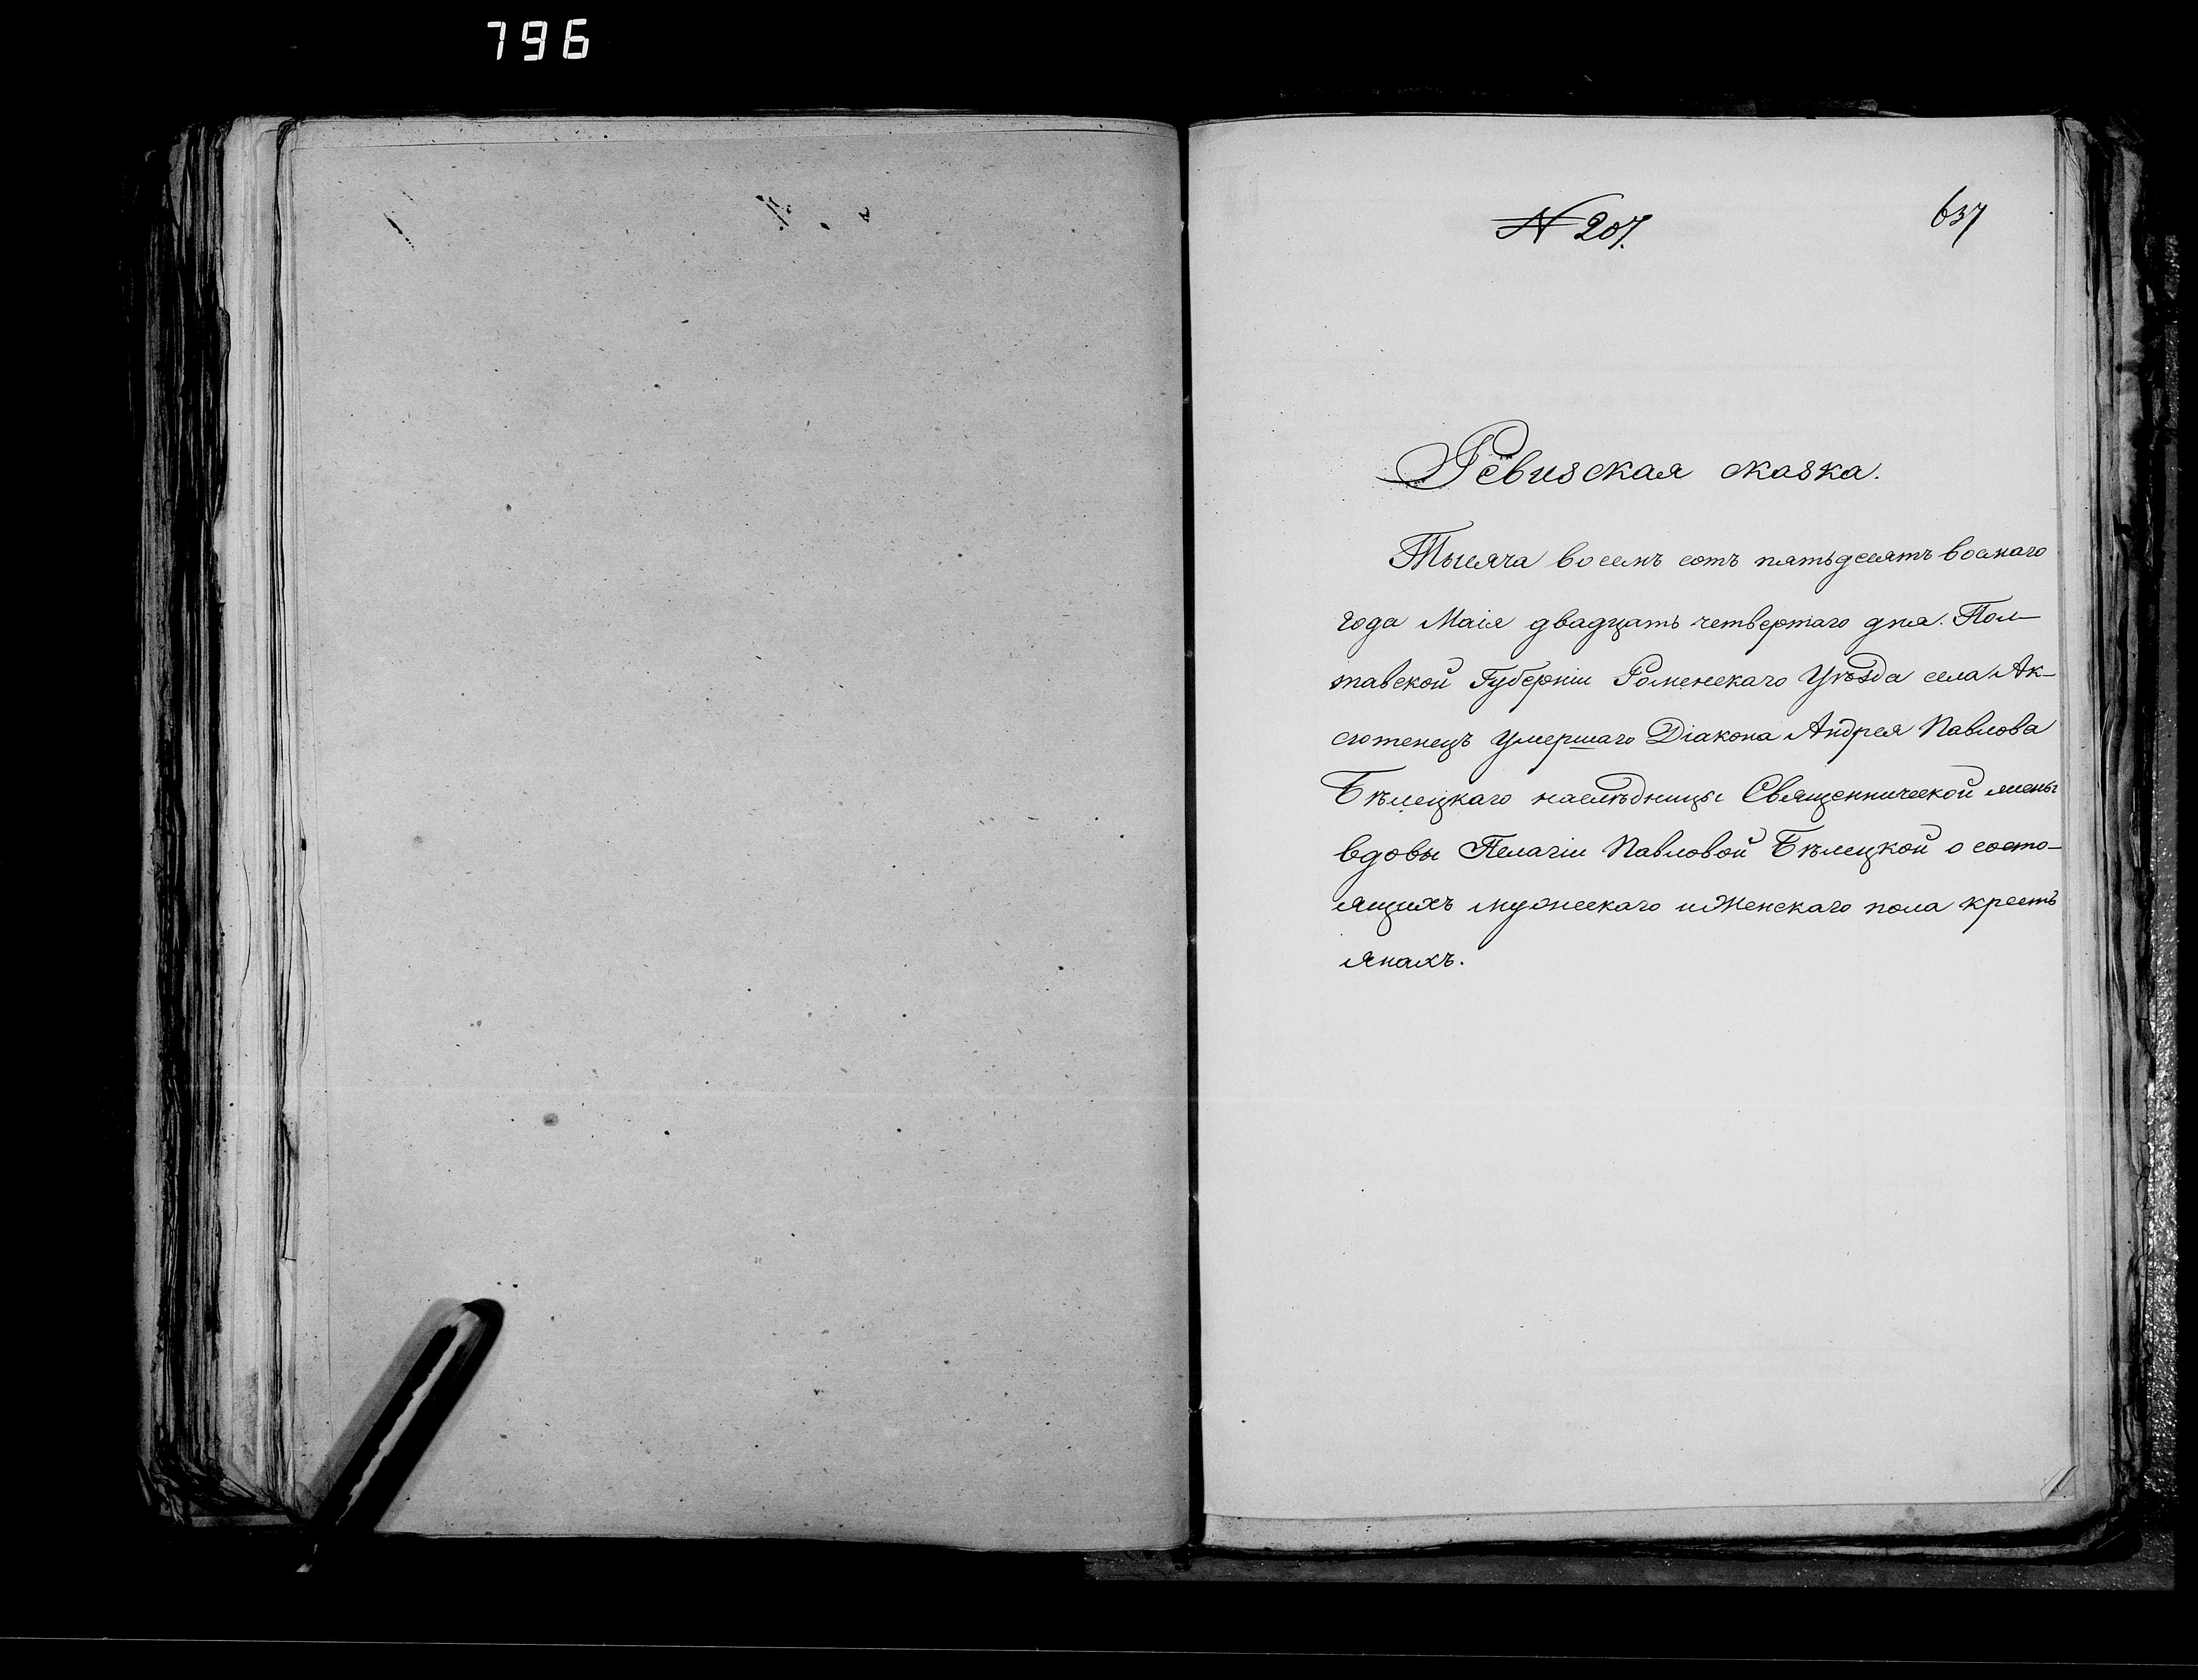 796
№ 207.
637
Ревизская сказка.
Тысяча восемъ сотъ пятьдесятъ восмаго
года Маія двадцать четвертаго дня. Пол-
тавской Губерніи Роменскаго Уѣзда села Ак-
сютенецъ умершаго Діакона Андрея Павлова
Бѣлецкаго наслѣдницы Священнической жены
вдовы Пелагіи Павловой Бѣлецкой о состо-
ящихъ мужескаго и Женскаго пола кресть
янахъ.